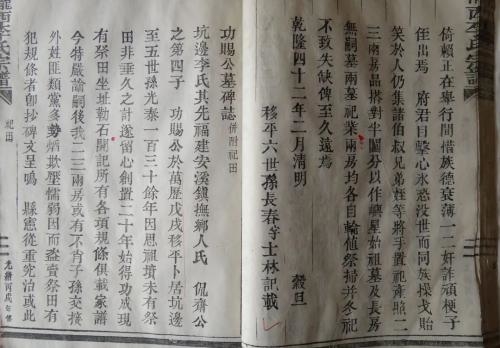 西李氏宗譜
倚賴正在舉行間惜族德衰薄一二奸詐頑梗子
侄出焉 府君目擊心氷恐沒世而同族操戈貽
笑於人仍集諸伯叔兄弟姪等將手置祀產照二
三兩房品搭對半鬮分以作嶼星始祖墓及長房
無嗣墓兩墓祀業兩房均各自輪值祭掃并冬祀
不致失缺俾至久遠焉
乾隆四十二年二月清明 穀旦
移平六世孫長春等士林記載
功賜公墓碑誌 併附祀田
坑邊李氏其先福建安溪鎮撫鄉人氏 侃齋公
之第四子 功賜公於萬歷戊戌移平卜居坑邊
至五世孫光泰一百三十餘年因思祖墳未有祭
田非垂久之計遂留心創置二十年始得功成現
有祭田坐址勒石開記所有各項規條俱載家譜
今特嚴諭嗣後我二三兩房或有不肖子孫交接
外姓匪類黨多勢炳欺壓懦弱因而盜賣祭田有
犯規條者卽抄碑文呈鳴 縣憲從重究治或此
隴西李氏宗譜 祀田 光緒丙戌年修